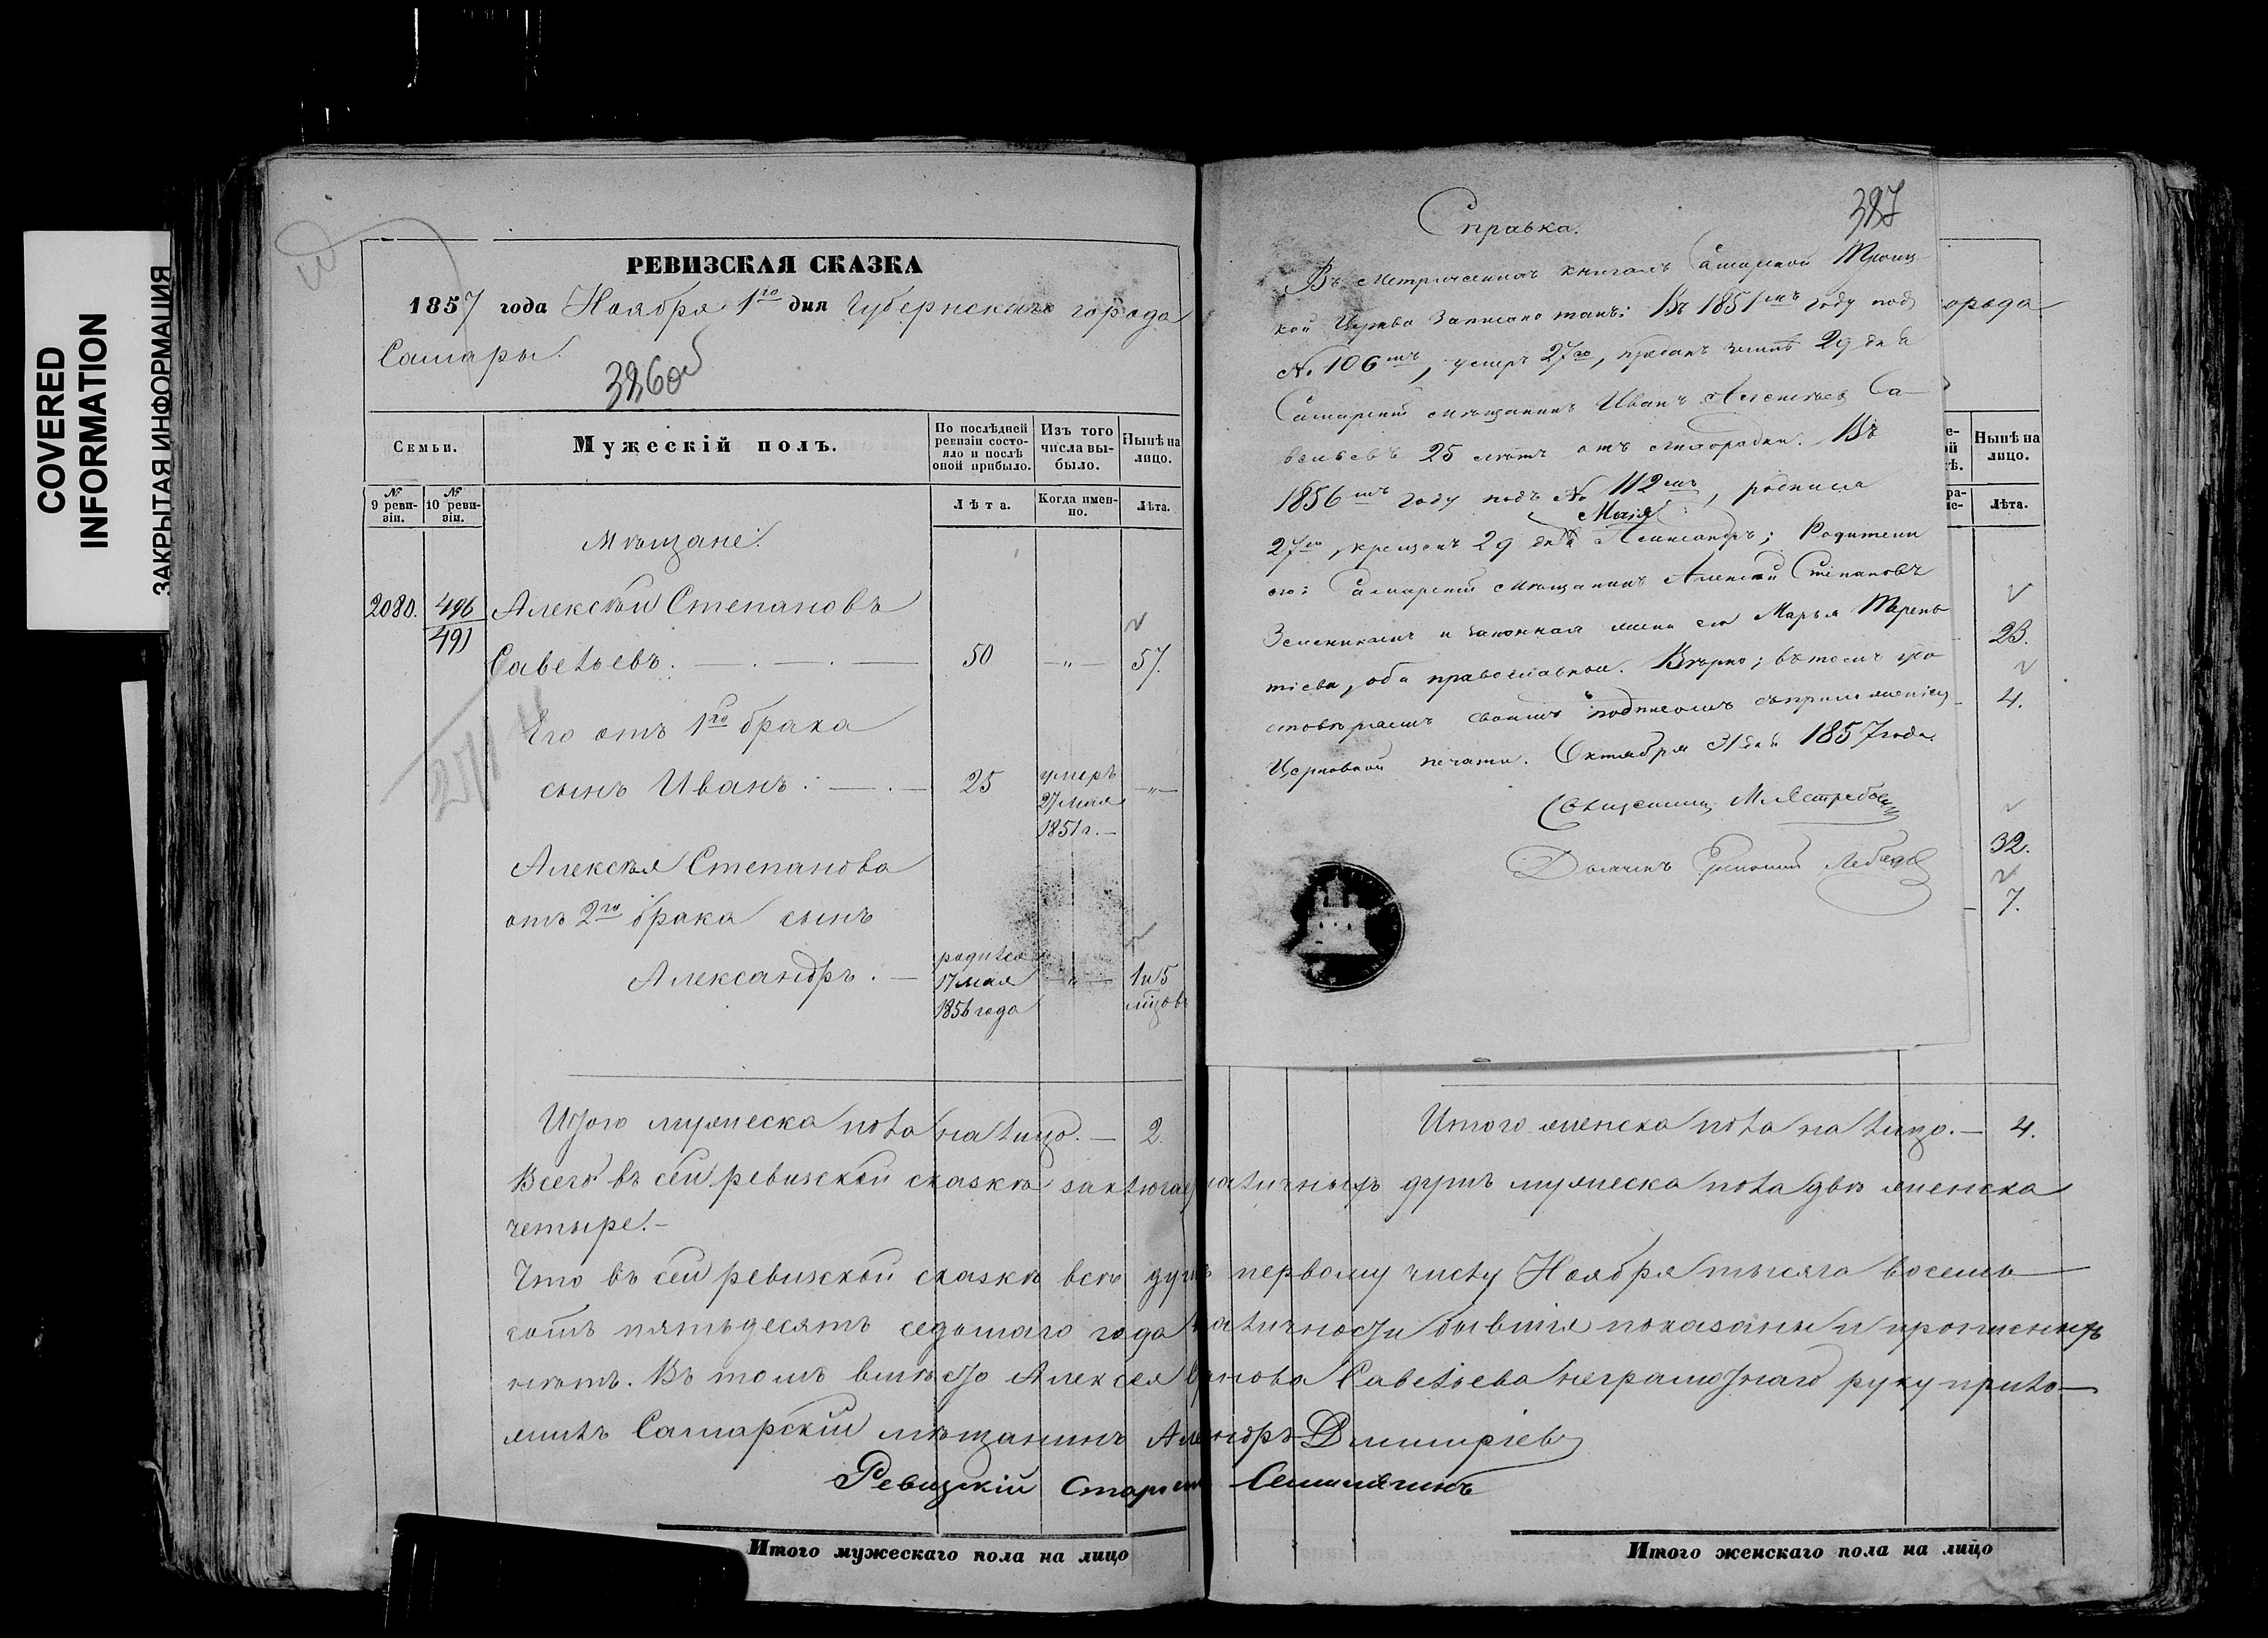 COVERED
INFORMATION
ЗАКРЫТАЯ ИНФОРМАЦИЯ
РЕВИЗСКАЯ СКАЗКА
1857 года Ноября 1го дня Губернскаго города
Самары.
386об
Семьи.
Мужескій полъ.
По послѣдней ревизіи состояло и послѣ оной прибыло.
Изъ того числа выбыло.
Нынѣ на лицо.
№ 9 ревизіи.
№ 10 ревизіи.
Лѣта.
Когда именно.
Лѣта.
Мѣщане.
2080. 496/491 Алексѣй Степановъ
Савельевъ. 50 —„— 57.
Его отъ 1го брака
сынъ Иванъ. 25 умеръ 27 мая 1851 г. —„—
Алексѣя Степанова
отъ 2го брака сынъ
Александръ. родился 17 мая 1856 года —„— 1 и 5 мѣцовъ
Итого мужеска пола на лицо. — 2.
Всего въ сей ревизской сказкѣ заключае
четыре.
Что въ сей ревизской сказкѣ всѣ душ
сотъ пятьдесятъ седьмаго года
нѣтъ. Въ томъ вмѣсто Алексея
жилъ Самарскій мѣщанинъ
Ревизскій Старо
Итого мужескаго пола на лицо
387
Справка.
Въ Метрическихъ книгахъ Самарской Троиц-
кой Церкви записано такъ: Въ 1851мъ году под
№ 106мъ, умеръ 27го, преданъ землѣ 29 дня
Самарскій мѣщанинъ Иванъ Алексѣевъ Са-
вельевъ 25 лѣтъ отъ лихорадки. Въ
1856мъ году подъ № 112мъ, родился
Маія
27го, крещенъ 29 дня Александръ; Родители
его: Самарскій мѣщанинъ Алексѣй Степановъ
и законная жена его Марья Терень-
тіева, оба православные. Вѣрно; въ томъ удо-
стовѣряемъ своимъ подписомъ съ приложеніемъ
Церковной печати. Октября 31 дня 1857 года.
Священникъ М. Ястребовъ
Дьячекъ Лебедевъ
орода
Нынѣ на лицо.
Лѣта.
23.
4.
32.
7.
Итого женска пола на лицо. — 4.
аличныхъ душъ мужеска пола двѣ женска
первому числу Ноября тысяча восемь
аличности бывшія показаны и прописныхъ
панова Савельева неграмотнаго руку прило-
ндръ Дмитріевъ
Итого женскаго пола на лицо